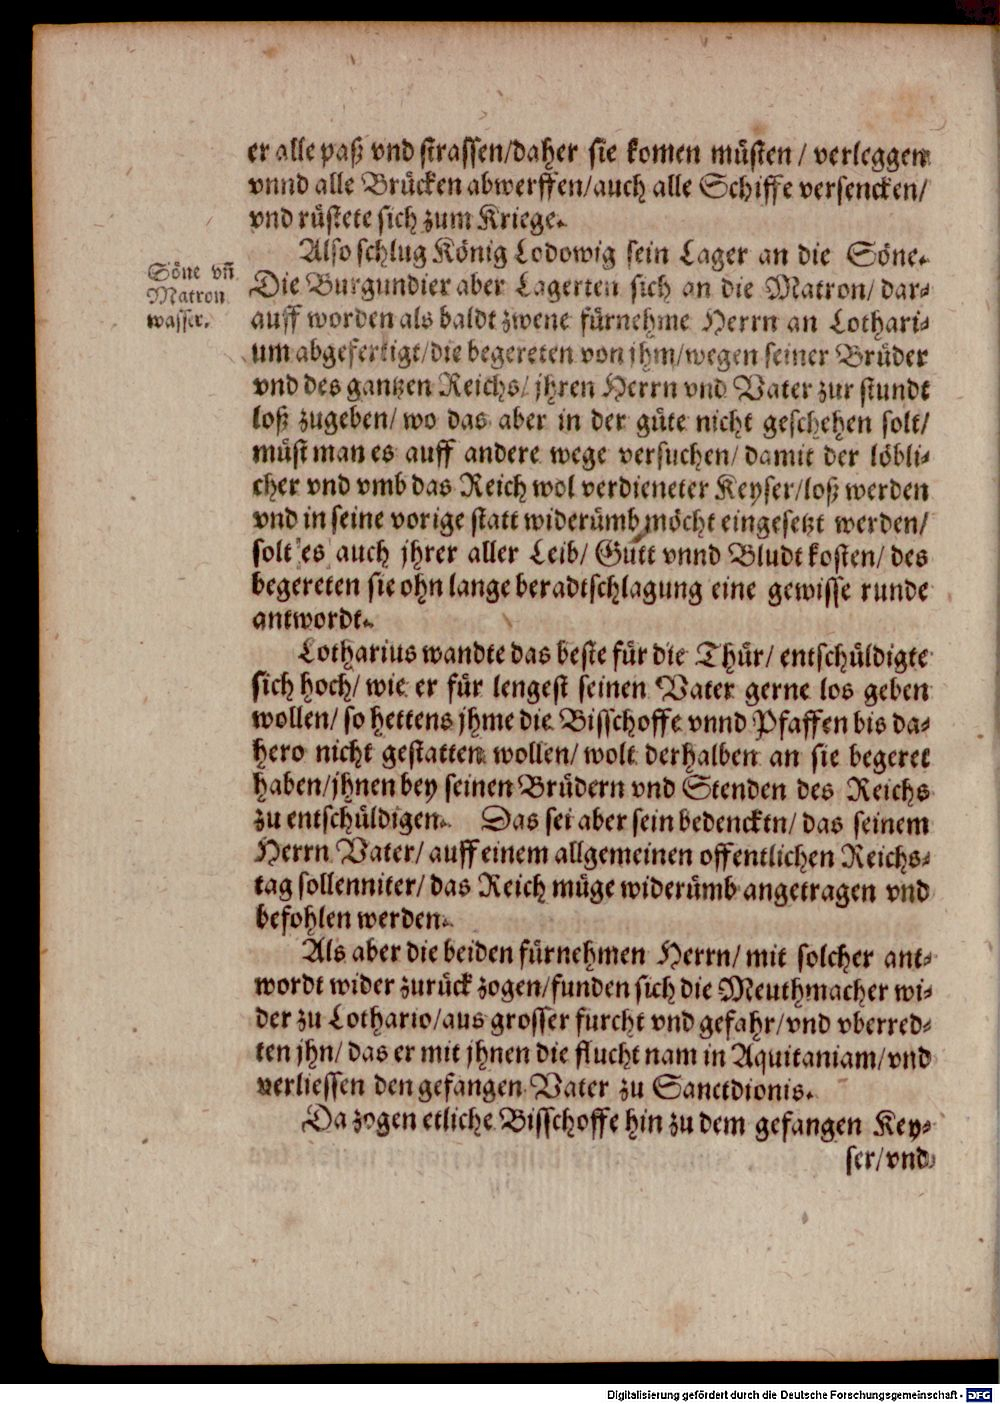 er alle paß vnd strassen/daher sie komen müsten / verleggen
vnnd alle Brücken abwerffen/auch alle Schiffe versencken/
vnd rüstete sich zum Kriege.
Also schlug König Lodowig sein Lager an die Söne.
Söne vñ
Matron
wasser.
Die Burgundier aber Lagerten sich an die Matron/ dar-
auff worden als baldt zwene fürnehme Herrn an Lothari-
um abgefertigt/die begereten von jhm/wegen seiner Brüder
vnd des gantzen Reichs/ jhren Herrn vnd Vater zur stundt
loß zugeben/ wo das aber in der güte nicht geschehen solt/
müst man es auff andere wege versuchen/ damit der löbli-
cher vnd vmb das Reich wol verdieneter Keyser/loß werden
vnd in seine vorige statt widerümb möcht eingesetzt werden/
solt es auch jhrer aller Leib/ Gutt vnnd Bludt kosten/ des
begereten sie ohn lange beradtschlagung eine gewisse runde
antwordt.
Lotharius wandte das beste für die Thür/ entschüldigte
sich hoch/ wie er für lengest seinen Vater gerne los geben
wollen/ so hettens jhme die Bisschoffe vnnd Pfaffen bis da-
hero nicht gestatten wollen/ wolt derhalben an sie begeret
haben/jhnen bey seinen Brüdern vnd Stenden des Reichs
zu entschüldigen. Das sei aber sein bedencktn/ das seinem
Herrn Vater/ auff einem allgemeinen offentlichen Reichs-
tag sollenniter/ das Reich müge widerümb angetragen vnd
befohlen werden.
Als aber die beiden fürnehmen Herrn/ mit solcher ant-
wordt wider zurück zogen/funden sich die Meuthmacher wi-
der zu Lothario/aus grosser furcht vnd gefahr/vnd vberred-
ten jhn/ das er mit jhnen die flucht nam in Aquitaniam/vnd
verliessen den gefangen Vater zu Sanctdionis.
Da zogen etliche Bisschoffe hin zu dem gefangen Key-
ser/vnd
Digitalisierung gefördert durch die Deutsche Forschungsgemeinschaft - DFG